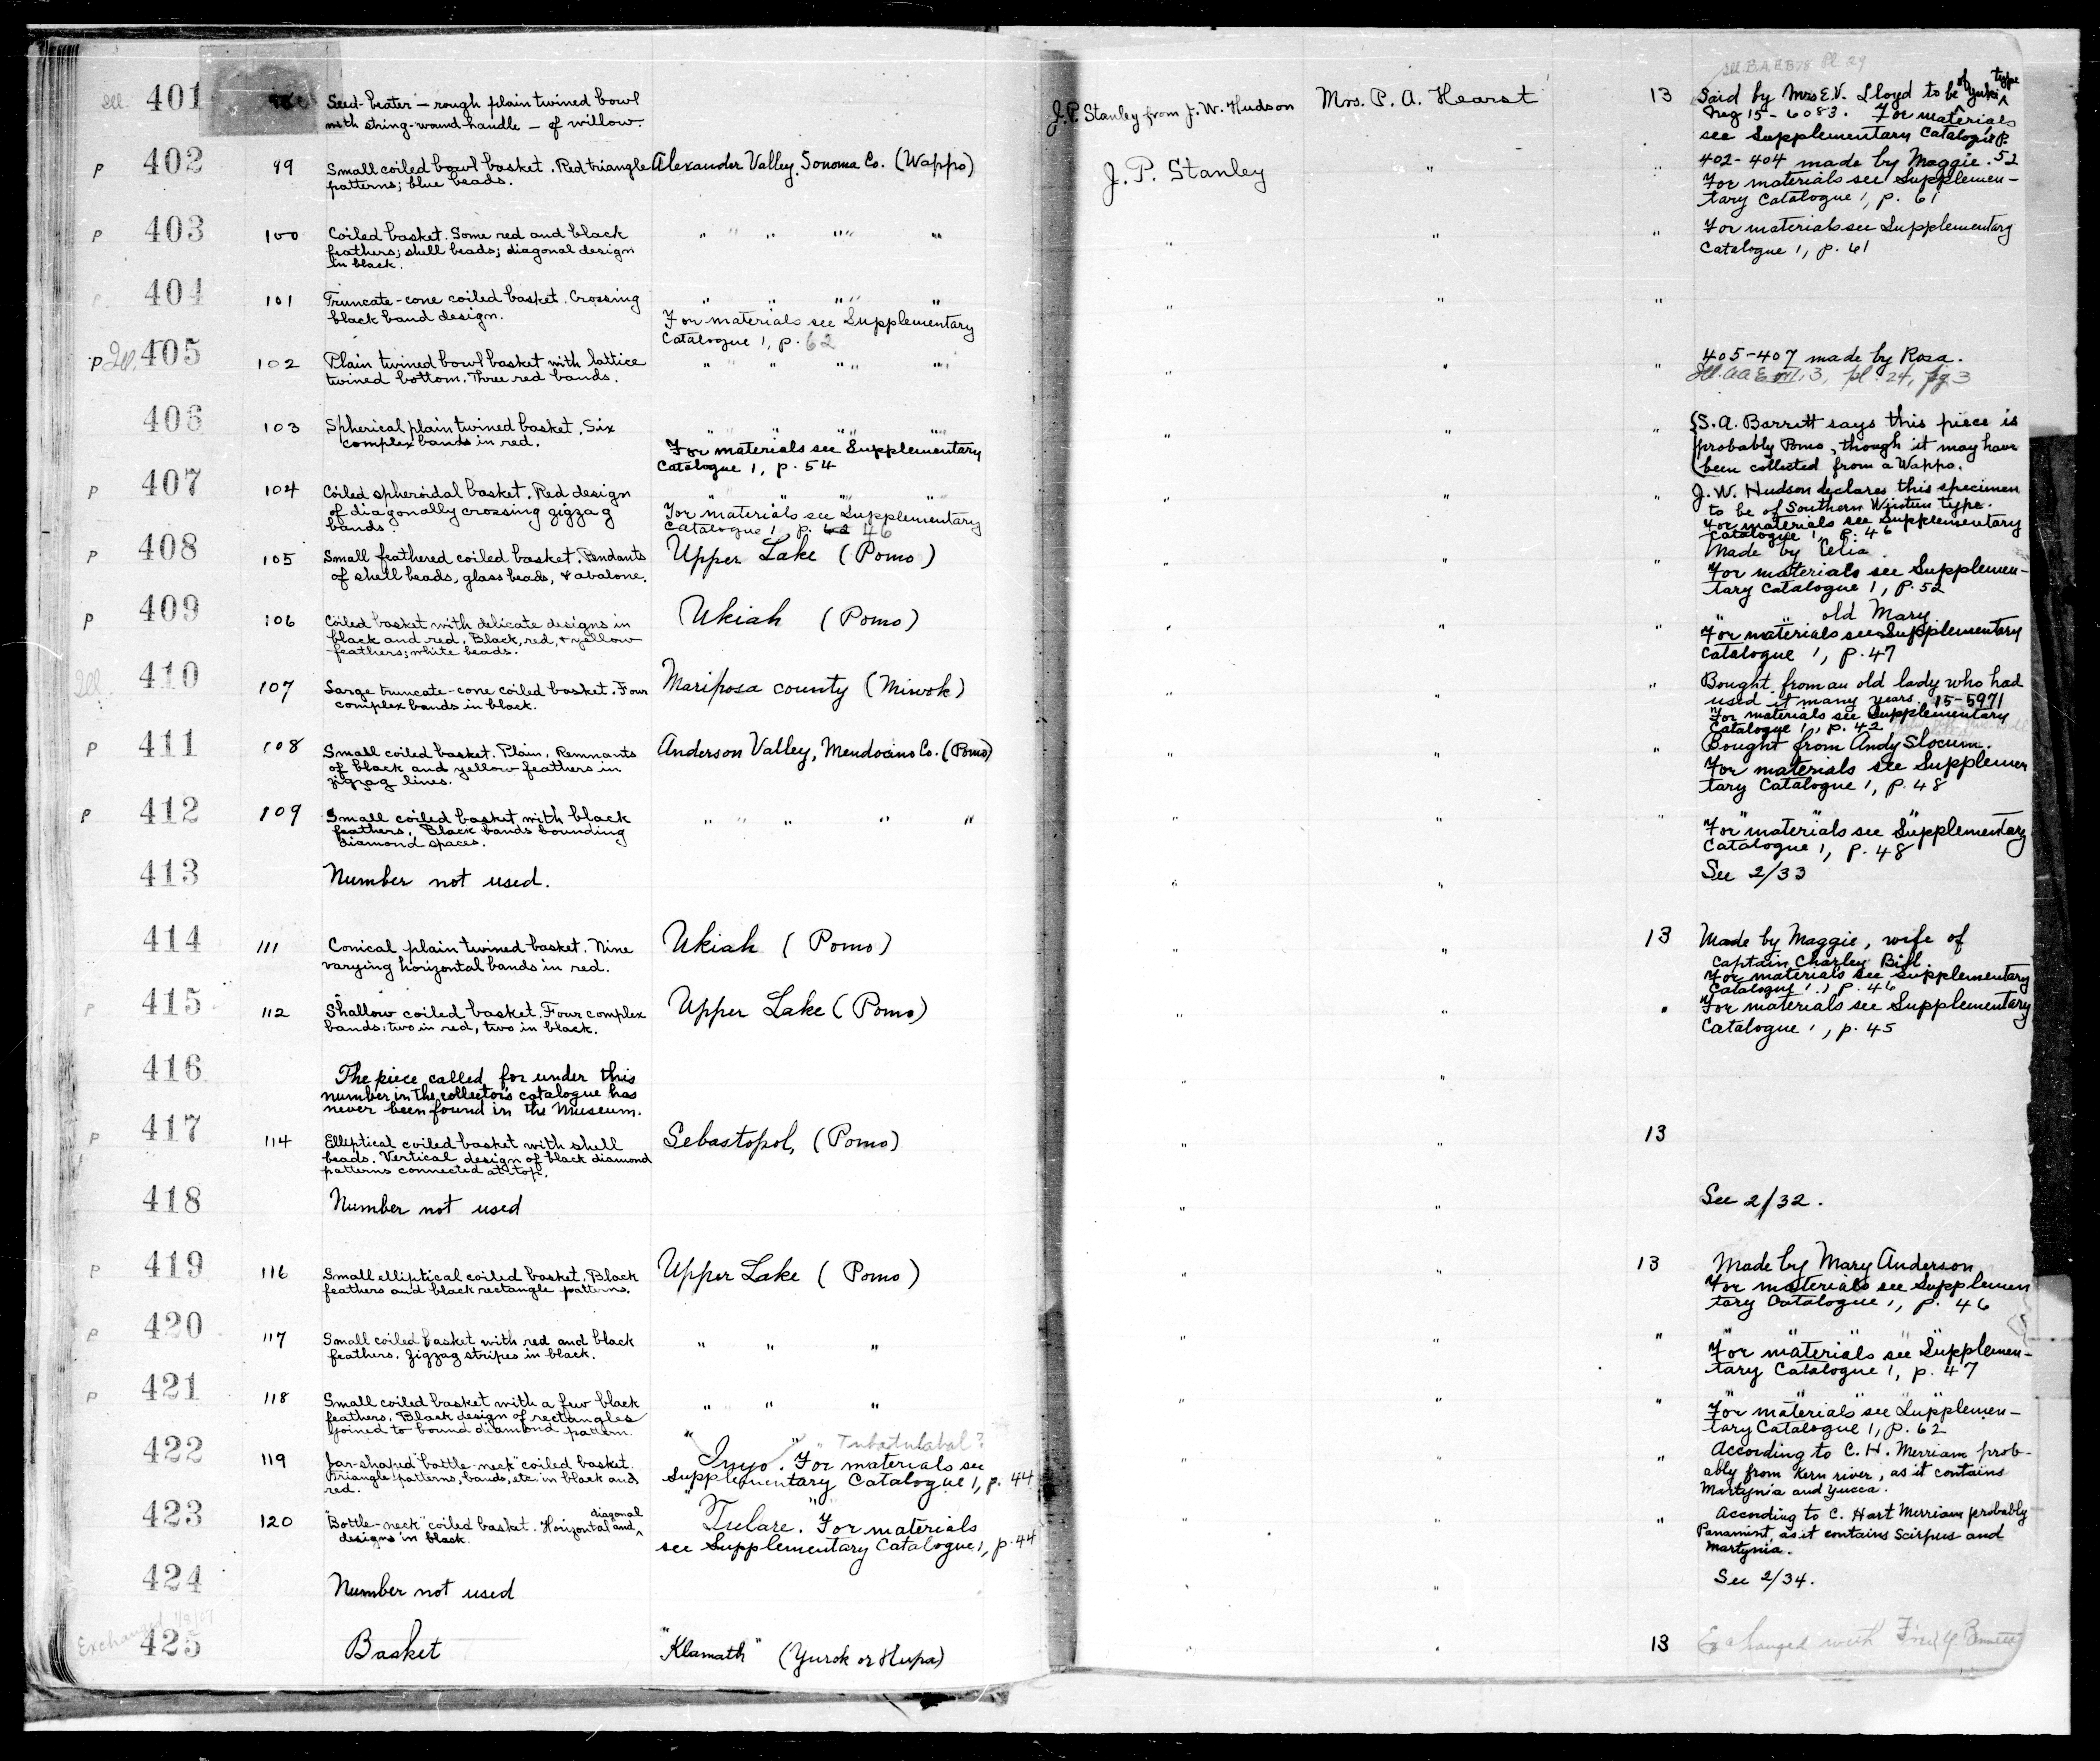 Ill. B.A.E.B 78 Pl. 29
Ill. 401 Seed-beater — rough plain twined bowl
with string-wound handle — of willow.
J.P. Stanley from J. W. Hudson Mrs. P. A. Hearst 13 Said by Mrs E.V. Lloyd to be of Yuki type
Neg 15-6083. For materials
see Supplementary Catalogue P.
52
P 402 99 Small coiled bowl basket. Red triangle
patterns; blue beads.
Alexander Valley, Sonoma Co. (Wappo)
J. P. Stanley " " 402-404 made by Maggie.
For materials see Supplemen-
tary Catalogue 1, p. 61
P 403 100 Coiled basket. Some red and black
feathers; shell beads; diagonal design
in black.
" " " " "
" " " For materials see Supplementary
Catalogue 1, p. 61
P 404 101 Truncate-cone coiled basket. Crossing
black band design.
" " " "
For materials see Supplementary
Catalogue 1, p. 62
" " "
P Ill. 405 102 Plain twined bowl basket with lattice
twined bottom. Three red bands.
" " " " "
" " " 405-407 made by Rosa.
Ill. AAE VII, 3, pl. 24, fig 3
406 103 Spherical plain twined basket. Six
complex bands in red.
" " " "
For materials see Supplementary
Catalogue 1, p. 54
" " " S. A. Barrett says this piece is
probably Pomo, though it may have
been collected from a Wappo.
P 407 104 Coiled spheroidal basket. Red design
of diagonally crossing zigzag
bands.
" " " "
For materials see Supplementary
Catalogue 1, p. 46
" " " J. W. Hudson declares this specimen
to be of Southern Wintun type.
For materials see Supplementary
Catalogue 1, P. 46
P 408 105 Small feathered coiled basket. Pendants
of shell beads, glass beads, & abalone.
Upper Lake (Pomo)
" " " Made by Celia.
For materials see Supplemen-
tary Catalogue 1, P. 52
P 409 106 Coiled basket with delicate designs in
black and red. Black, red, & yellow
feathers; white beads.
Ukiah (Pomo)
" " " " " old Mary
For materials see Supplementary
Catalogue 1, p. 47
Ill. 410 107 Large truncate-cone coiled basket. Four
complex bands in black.
Mariposa county (Miwok)
" " " Bought from an old lady who had
used it many years. 15-5971
For materials see Supplementary
Catalogue 1, p. 42
P 411 108 Small coiled basket. Plain. Remnants
of black and yellow feathers in
zigzag lines.
Anderson Valley, Mendocino Co. (Pomo)
" " " Bought from Andy Slocum.
For materials see Supplemen
tary Catalogue 1, p. 48
P 412 109 Small coiled basket with black
feathers. Black bands bounding
diamond spaces.
" " " " "
" " " " " "
For materials see Supplementary
Catalogue 1, p. 48
413 Number not used.
" " See 2/33
414 111 Conical plain twined basket. Nine
varying horizontal bands in red.
Ukiah (Pomo)
" " 13 Made by Maggie, wife of
Captain Charley Bill.
For materials see Supplementary
Catalogue 1, p. 46
P 415 112 Shallow coiled basket. Four complex
bands: two in red, two in black.
Upper Lake (Pomo)
" " " For materials see Supplementary
Catalogue 1, p. 45
416 The piece called for under this
number in the collector's catalogue has
never been found in the Museum.
" "
P 417 114 Elliptical coiled basket with shell
beads. Vertical design of black diamond
patterns connected at top.
Sebastopol, (Pomo)
" " 13
418 Number not used
" " See 2/32.
P 419 116 Small elliptical coiled basket. Black
feathers and black rectangle patterns.
Upper Lake (Pomo)
" " 13 Made by Mary Anderson
For materials see Supplemen
tary Catalogue 1, p. 46
P 420 117 Small coiled basket with red and black
feathers. Zigzag stripes in black.
" " "
" " " " " " "
For materials see Supplemen-
tary Catalogue 1, p. 47
P 421 118 Small coiled basket with a few black
feathers. Black design of rectangles
joined to bound diamond pattern.
" " "
" " " " " " "
For materials see Supplemen-
tary Catalogue 1, P. 62
422 119 Jar-shaped "bottle-neck" coiled basket.
Triangle patterns, bands, etc. in black and
red.
Tubatulabal?
"Inyo". For materials see
Supplementary Catalogue 1, p. 44
" " " According to C. H. Merriam prob-
ably from Kern river, as it contains
Martynia and Yucca.
423 120 "Bottle-neck" coiled basket. Horizontal and diagonal
designs in black.
"Tulare". For materials
see Supplementary Catalogue 1, p. 44
" " " According to C. Hart Merriam probably
Panamint, as it contains Scirpus and
Martynia.
424 Number not used
" " See 2/34.
Exchanged
425 Basket "Klamath" (Yurok or Hupa)
" " 13 Exchanged with Fred